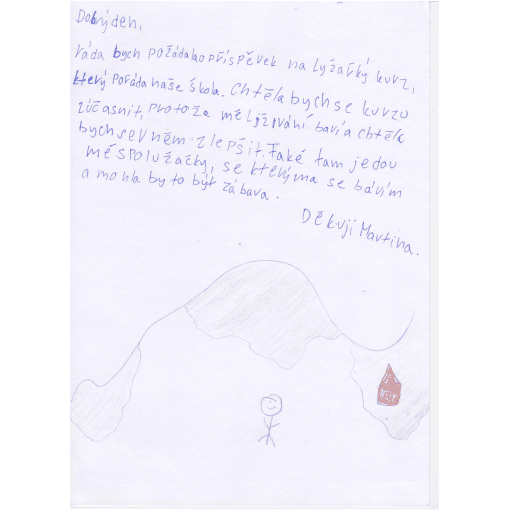 Dobrý den,
ráda bych požádala o příspěvek na lyžařký kurz,
který pořáda naše škola. Chtěla bych se kurzu
zúčasnit, protoža mě lyžování baví a chtěla
bych se v něm zlepšit. Také tam jedou
mé spolužačky, se kterýma se bávím
a mohla by to být zábava.
Děkuji Martina.